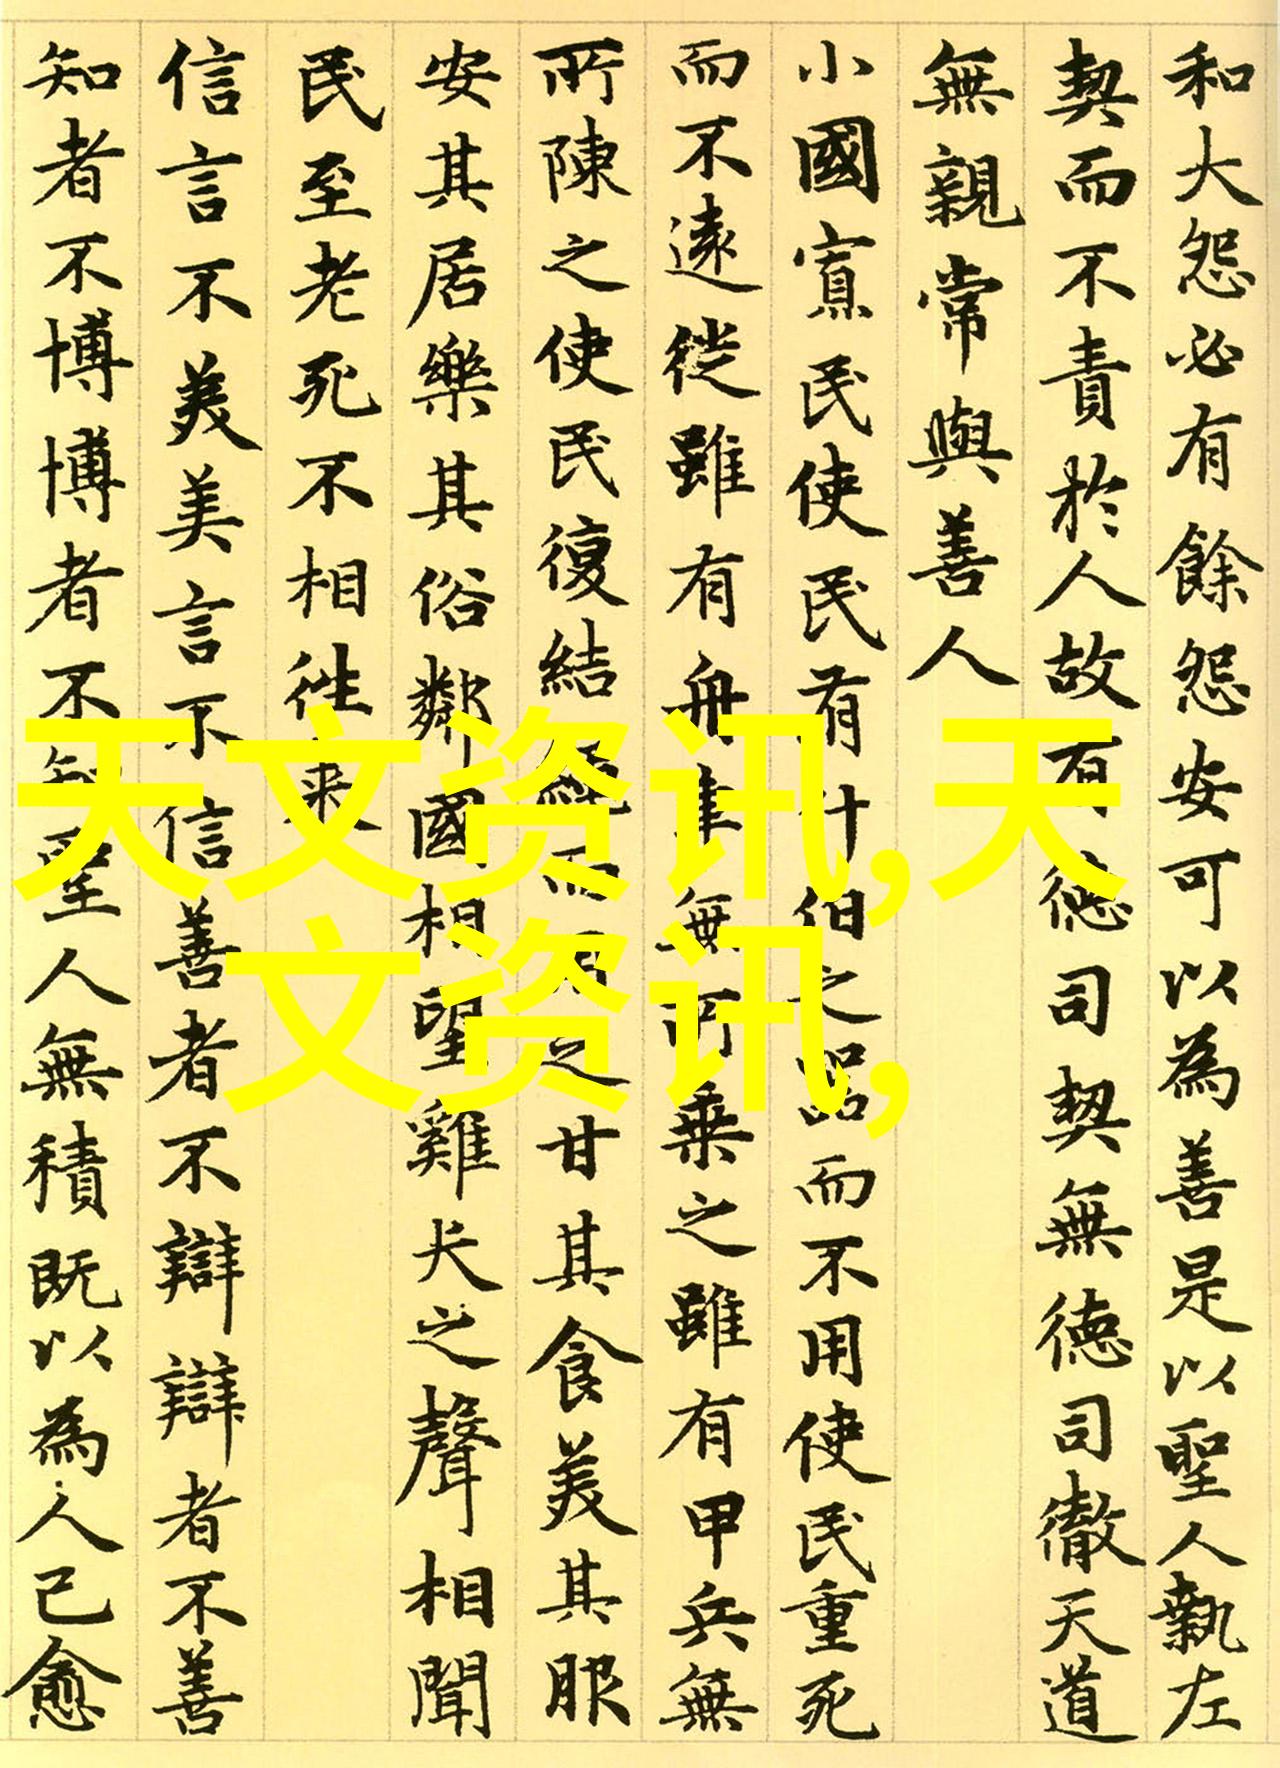 和大怨必有餘怨安可以為善是以聖人執左
契而不責於人故有德司契無德司徹天道
無親常與善人
小國寡民使民有什伯之器而不用使民重死
而不遠徙雖有舟車無所乗之雖有甲兵無
所陳之使民復結繩而用之甘其食美其服
安其居樂其俗鄰國相望雞犬之聲相聞
民至老死不相往来
信言不美美言不信善者不辯辯者不善
知者不博博者不知聖人無積既以為人己愈
天文资讯,天
文资讯,